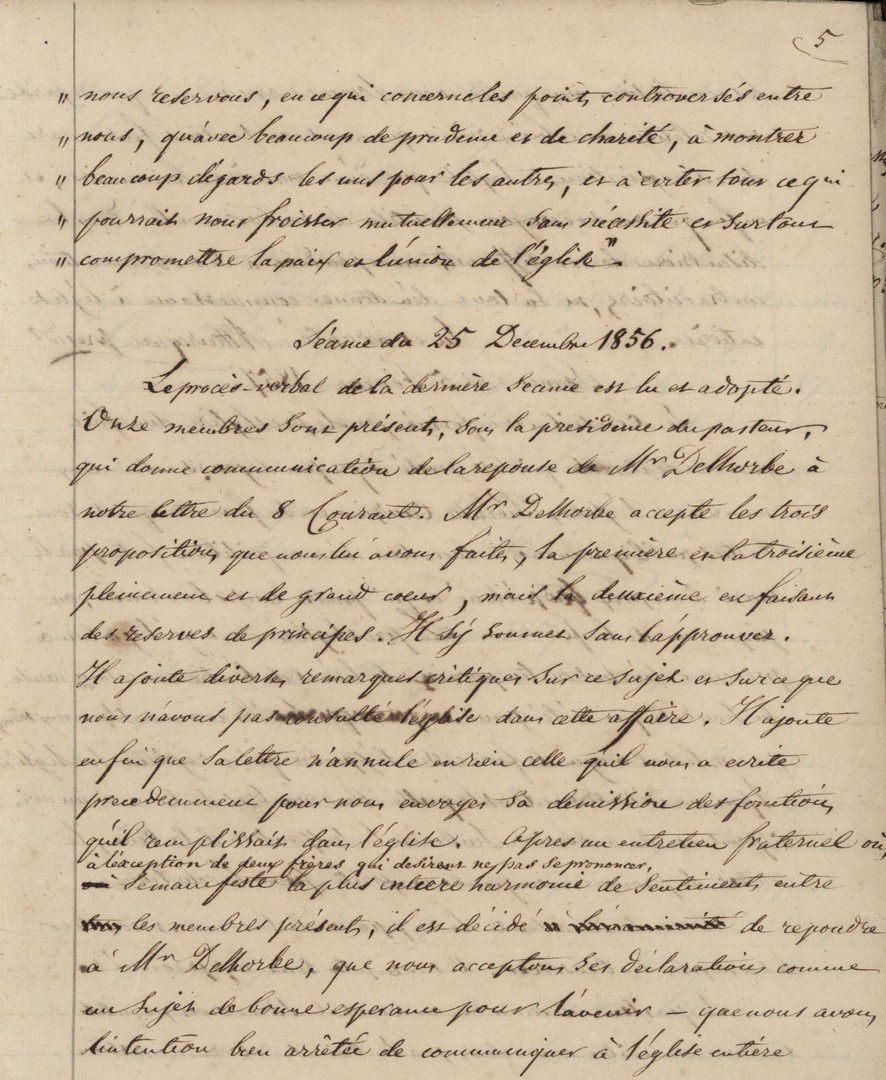 5
" nous reservous, en ce qui concerne les points controversés entre
" nous, qu'avec beaucoup de prudence et de charité, à montrer
" beaucoup d'égards les uns pour les autres, et à eviter tout ce qui
" pourrait nous froisser mutuellement sans nécessité et surtout
" compromettre la paix et l'union de l'église".
Séance du 25 Decembre 1856.
Le procès-verbal de la dernière seance est lu et adopté.
Onze membres sont présents, sous la presidence du pasteur,
qui donne communication de la reponse de Mr Delhorbe à
notre lettre du 8 Courant. Mr Delhorbe accepte les trois
propositions que nous lui avons faites, la première et la troisième
pleinement et de grand coeur, mais la deuxième en faisant
des reserves de principes. Il s'y soumet sans l'approuver.
Il ajoute diverses remarques critiques sur ce sujet et sur ce que
nous n'avons pas consulté l'église dans cette affaire. Il ajoute
enfin que sa lettre n'annule en rien celle qu'il nous a ecrite
precedemment pour nous envoyer sa demission des fonctions
qu'il remplissait dans l'église. Apres un entretien fraternel où,
à l'exception de deux frères qui desirent ne pas se prononcer,
se manifeste la plus entiere harmonie de sentiments entre
les membres présents, il est décidé de repondre
à Mr Delhorbe, que nous acceptons ses déclarations comme
un sujet de bonne esperance pour l'avenir – que nous avons
l'intention bien arrêtée de communiquer à l'église entière